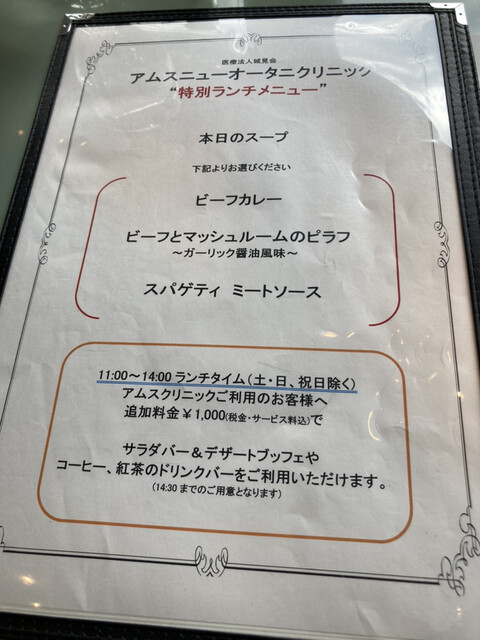 医療法人城見会
アムスニューオータニクリニック
“特別ランチメニュー”
本日のスープ
下記よりお選びください
ビーフカレー
ビーフとマッシュルームのピラフ
～ガーリック醤油風味～
スパゲティ ミートソース
11:00～14:00 ランチタイム（土・日、祝日除く）
アムスクリニックご利用のお客様へ
追加料金￥1,000(税金・サービス料込)で
サラダバー＆デザートブッフェや
コーヒー、紅茶のドリンクバーをご利用いただけます。
(14:30 までのご用意となります)